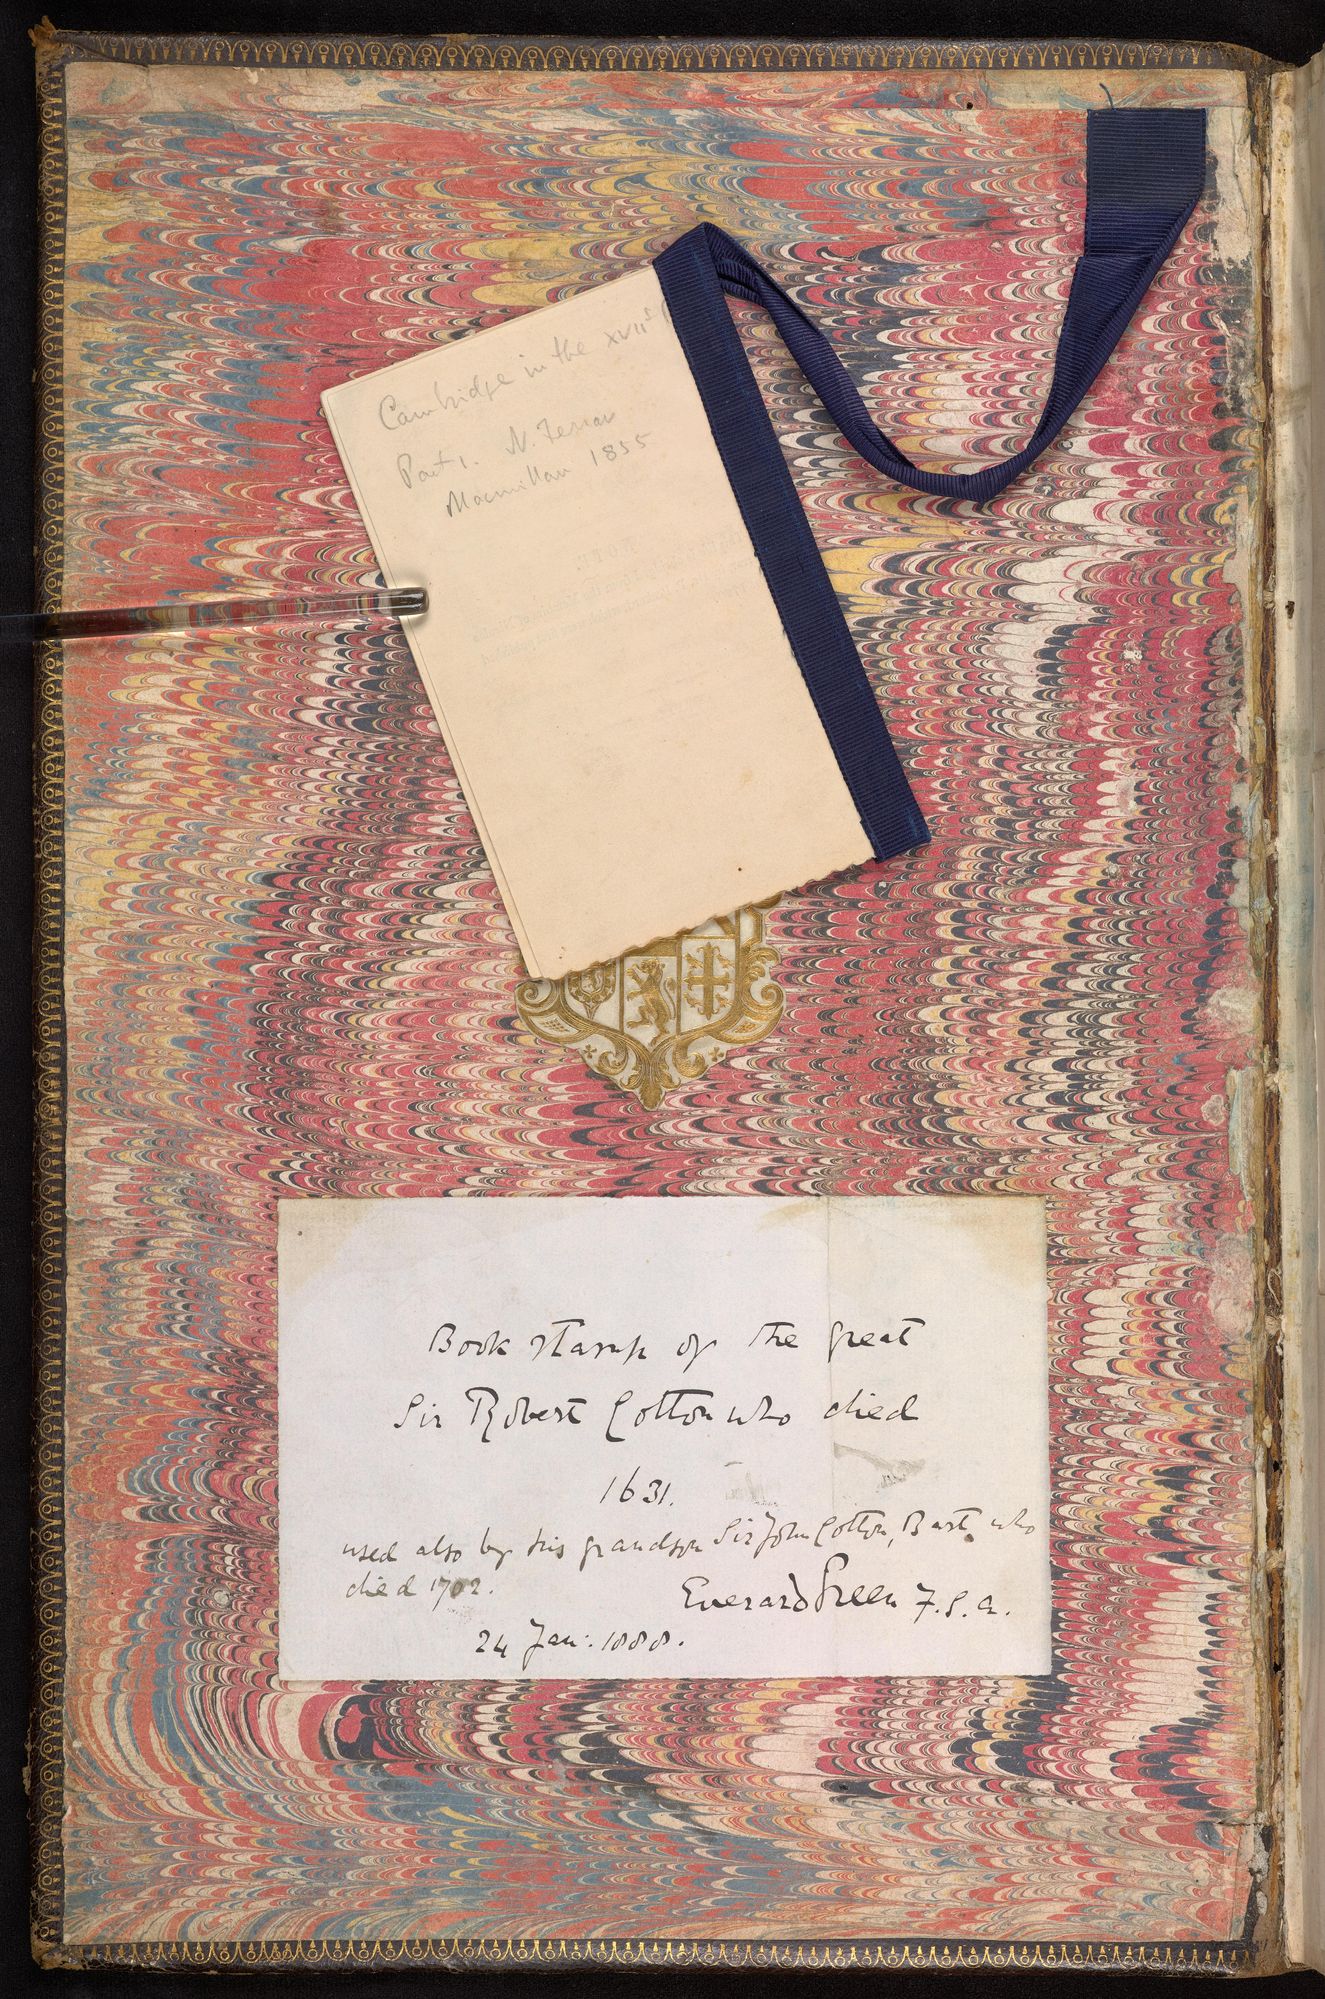 Cambridge in the XVIIth
Part 1. N. Ferrar
Macmillan 1855
Book stamp of the great
Sir Robert Cotton who died
1631.
used also by his grandson Sir John Cotton, Bart. who
died 1702.
Everard Green F.S.A.
24 Jan: 1888.